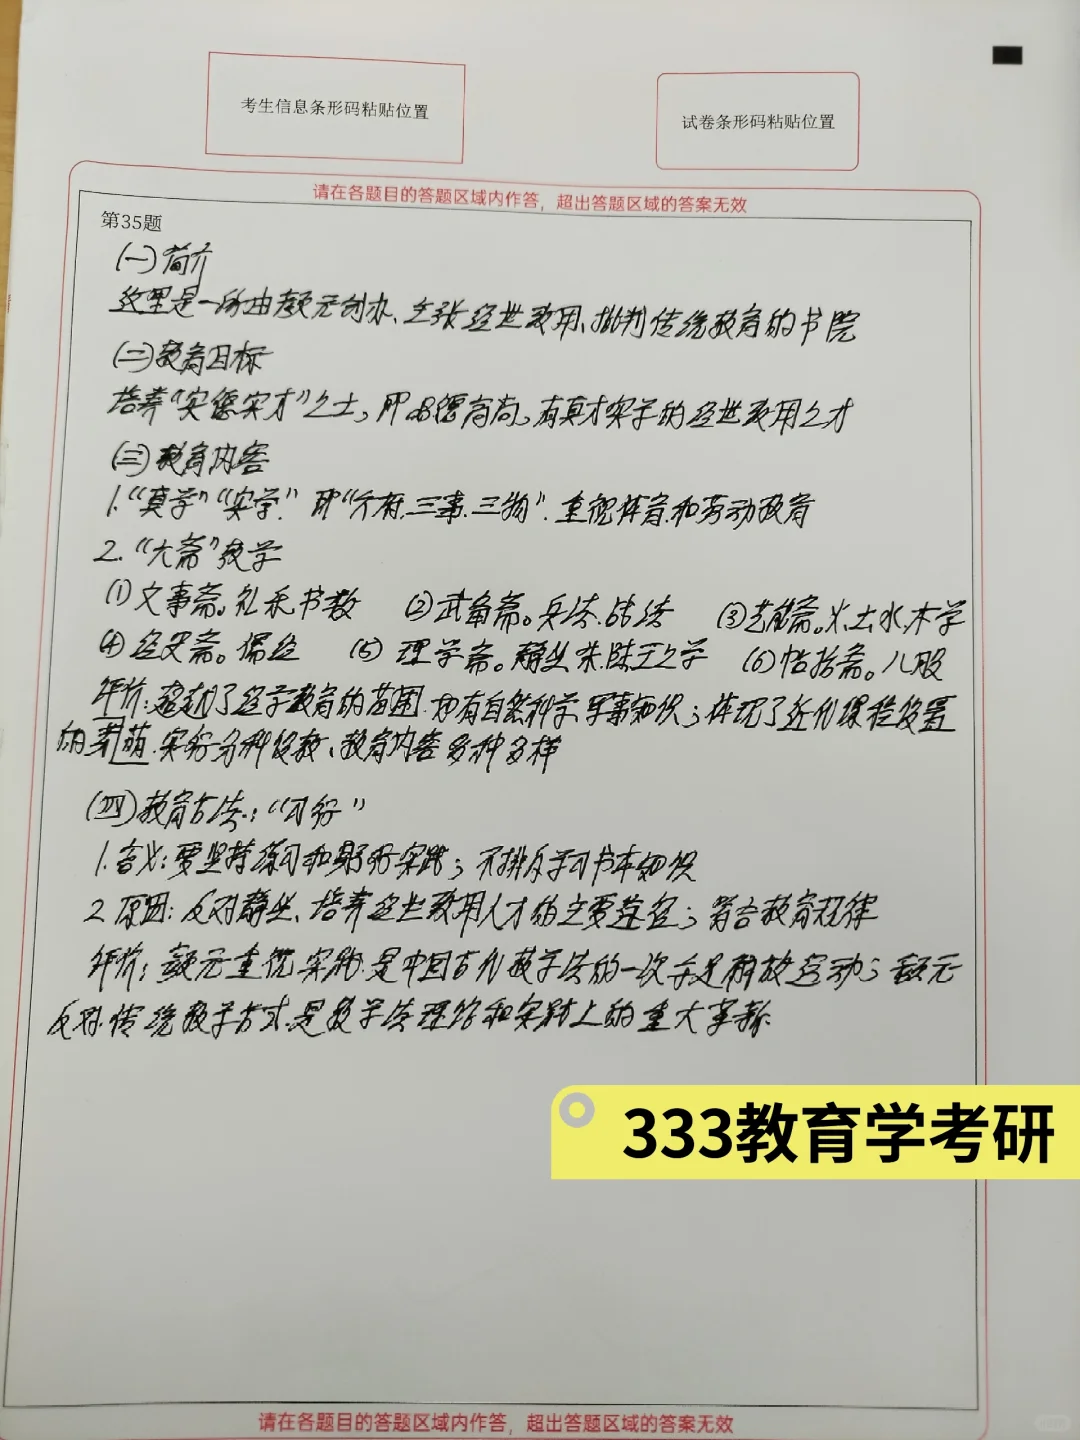 考生信息条形码粘贴位置
试卷条形码粘贴位置
请在各题目的答题区域内作答，超出答题区域的答案无效
第35题
(一)简介
这里是一所由颜元创办、主张经世致用、批判传统教育的书院
(二)教育目标
培养“实德实才”之士，即品德高尚，有真才实学的经世致用之才
(三)教育内容
1.“真学”“实学”.即“六府、三事、三物”.重视体育和劳动教育
2.“六斋”教学
①文事斋。礼乐书数 ②武备斋。兵法、战法 ③艺能斋。火、土、水、木学
④经史斋。儒经 ⑤理学斋。静坐、朱、陆、王之学 ⑥帖括斋。八股
评价:超越了经学教育的范围.也有自然科学、军事知识;体现了近代课程设置
的萌.实行分科设教、教育内容多种多样
(四)教育方法:“习行”
1.含义:要坚持练习和躬行实践;不排斥学习书本知识
2.原因:反对静坐、培养经世致用人才的主要途径;符合教育规律
评价:颜元重视实践.是中国古代教学法的一次手足解放运动;颜元
反对传统教学方式.是教学法理论和实践上的重大革新.
333教育学考研
请在各题目的答题区域内作答，超出答题区域的答案无效